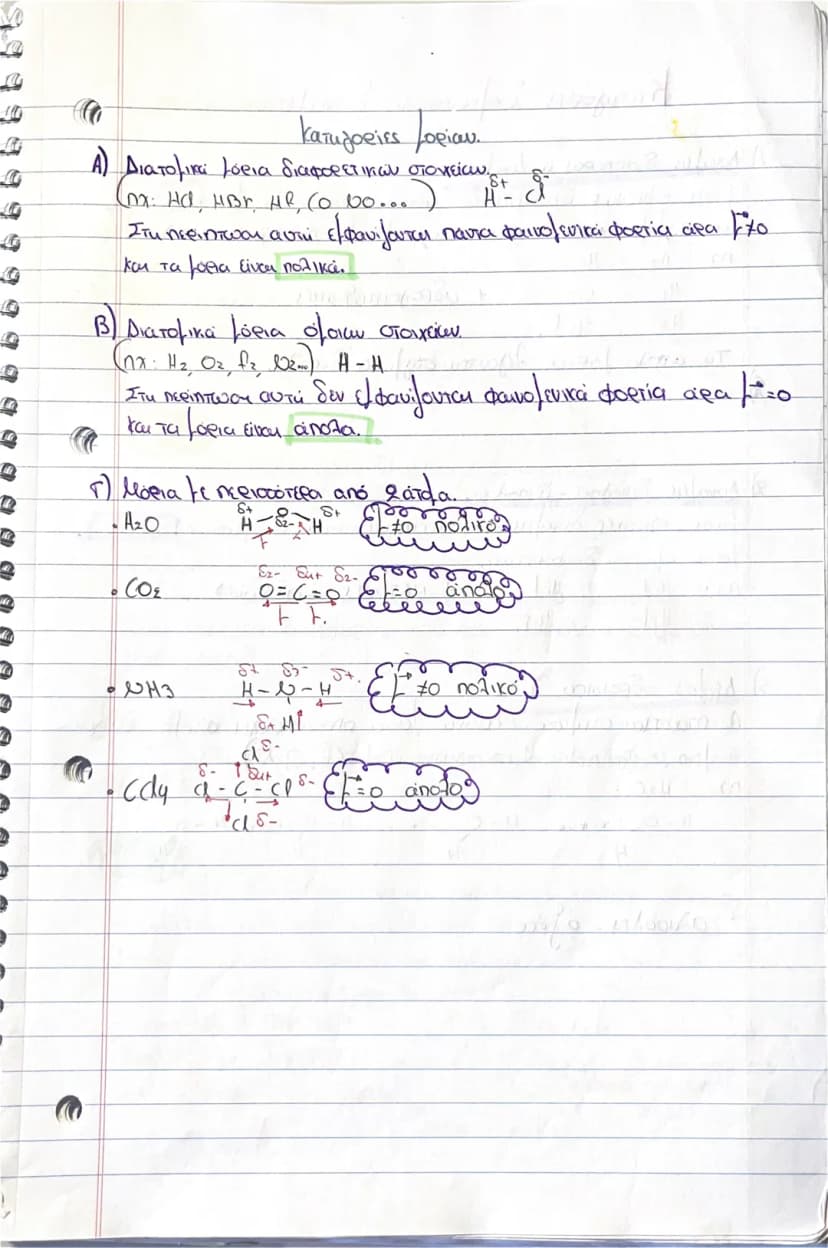 Κατηγορίες μορίων.
Α) Διατομικά μόρια διαφορετικών στοιχείων.
(πχ: HCl, HBr, HF, CO NO...) δ+ δ-
H - Cl
Στη περίπτωση αυτή εμφανίζονται πάντα φαινομενικά φορτία άρα μ≠0
και τα μόρια είναι πολικά.
Β) Διατομικά μόρια όμοιων στοιχείων.
(πχ: H2, O2, F2, N2...) H - H
Στη περίπτωση αυτή δεν εμφανίζονται φαινομενικά φορτία άρα μ=0
και τα μόρια είναι άπολα.
Γ) Μόρια με περισσότερα από 2 άτομα.
δ+ δ+
• H2O H - O - H μ≠0 πολικό
δ2-
μ
δ2- δ4+ δ2-
• CO2 O=C=O μ=0 άπολο
μ μ.
δ+ δ3- δ+.
• NH3 H - N - H μ≠0 πολικό
δ+ H
Cl δ-
δ- δ4+
• CCl4 Cl - C - Cl δ- μ=0 άπολο
Cl δ-